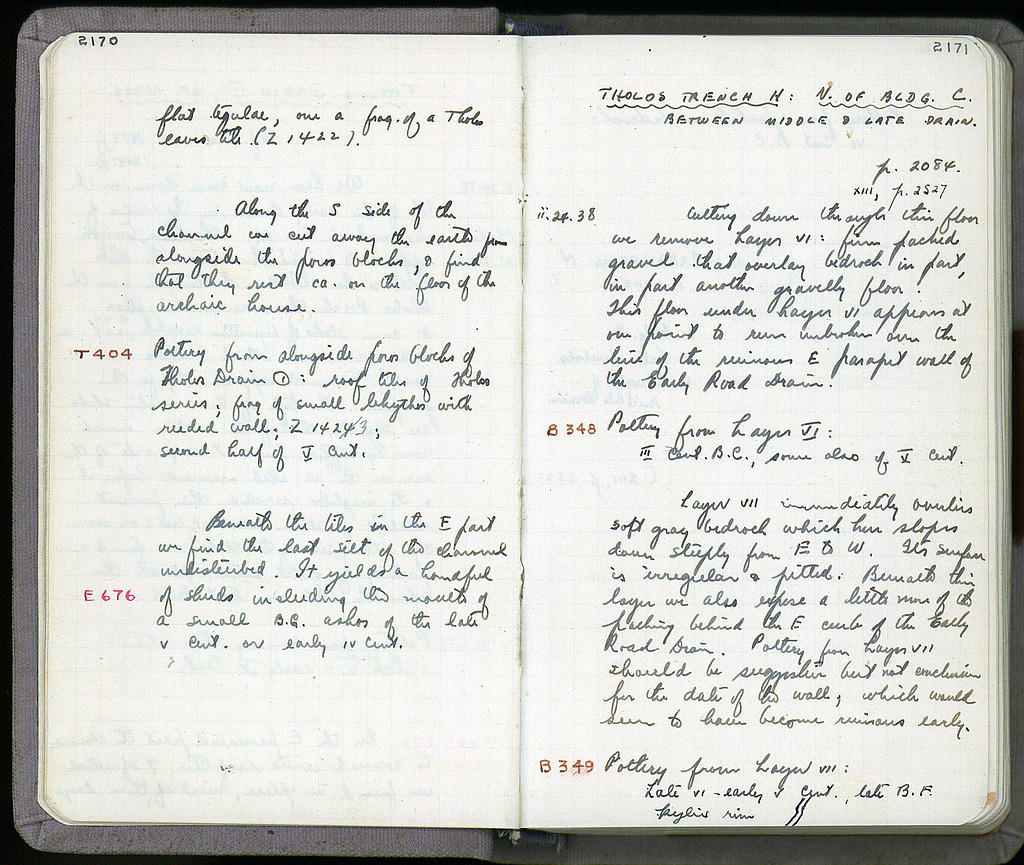 2170
flat tegulae, one a frag. of a Tholos
eaves tile. (Z 1422).
Along the S side of the
channel we cut away the earth from
alongside the poros blocks, & find
that they rest ca. on the floor of the
archaic house.
T 404 Pottery from alongside poros blocks of
Tholos Drain ①: roof tiles of Tholos
series; frag of small lekythos with
reeded wall; Z 1423;
second half of V Cent.
Beneath the tiles in the E part
we find the last silt of the channel
undisturbed. It yields a handful
E 676 of sherds including the mouth of
a small B.G. askos of the late
V Cent. or early IV Cent.
2171
THOLOS TRENCH H: N. OF BLDG. C.
BETWEEN MIDDLE & LATE DRAIN.
p. 2084.
XIII, p. 2527
ii.24.38 Cutting down through this floor
we remove Layer VI: firm packed
gravel that overlay bedrock in part,
in part another gravelly floor.
This floor under Layer VI appears at
one point to run unbroken over the
line of the ruinous E parapet wall of
the Early Road Drain.
B 348 Pottery from Layer VI:
III Cent. B.C., some also of V Cent.
Layer VII immediately overlies
soft gray bedrock which here slopes
down steeply from E to W. Its surface
is irregular & pitted. Beneath this
layer we also expose a little more of the
packing behind the E curb of the Early
Road Drain. Pottery from Layer VII
should be suggestive but not conclusive
for the date of the wall; which would
seem to have become ruinous early.
B 349 Pottery from Layer VII:
Late VI - early V Cent., late B.F.
kylix rim